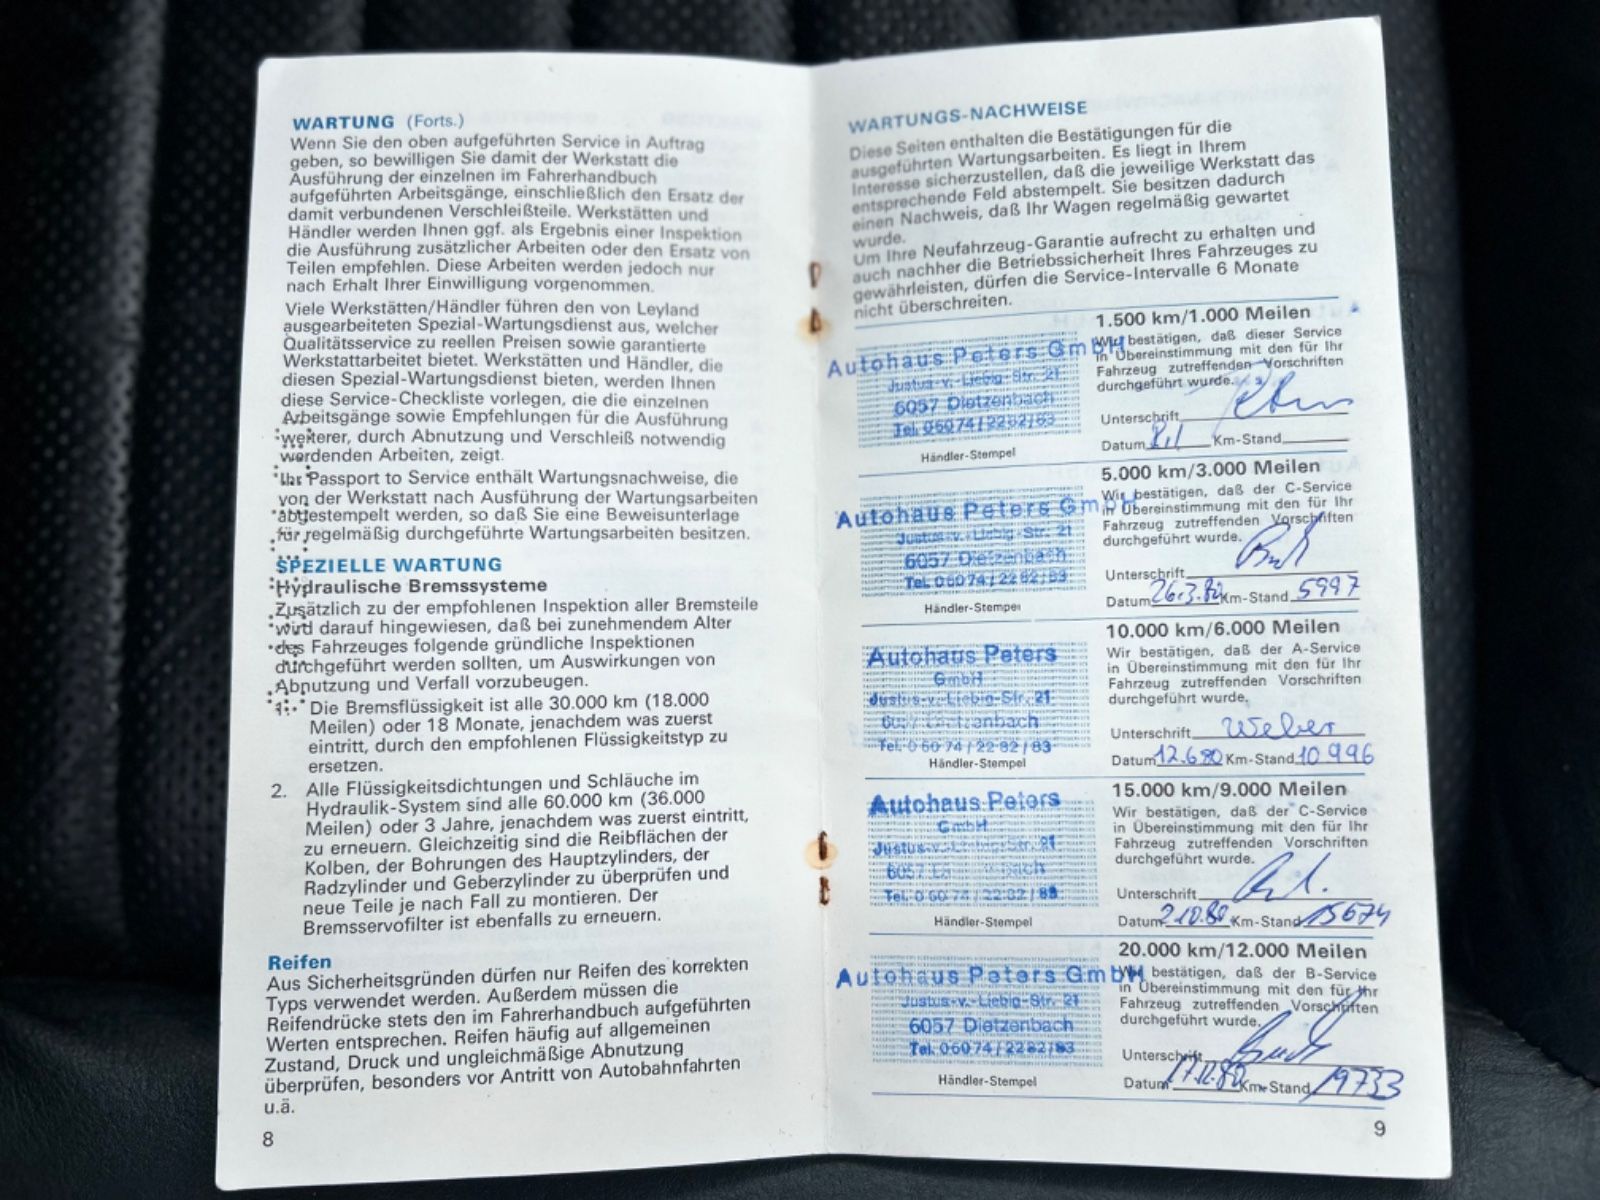 WARTUNG (Forts.)
Wenn Sie den oben aufgeführten Service in Auftrag
geben, so bewilligen Sie damit der Werkstatt die
Ausführung der einzelnen im Fahrerhandbuch
aufgeführten Arbeitsgänge, einschließlich den Ersatz der
damit verbundenen Verschleißteile. Werkstätten und
Händler werden Ihnen ggf. als Ergebnis einer Inspektion
die Ausführung zusätzlicher Arbeiten oder den Ersatz von
Teilen empfehlen. Diese Arbeiten werden jedoch nur
nach Erhalt Ihrer Einwilligung vorgenommen.
Viele Werkstätten/Händler führen den von Leyland
ausgearbeiteten Spezial-Wartungsdienst aus, welcher
Qualitätsservice zu reellen Preisen sowie garantierte
Werkstattarbeitet bietet. Werkstätten und Händler, die
diesen Spezial-Wartungsdienst bieten, werden Ihnen
diese Service-Checkliste vorlegen, die die einzelnen
Arbeitsgänge sowie Empfehlungen für die Ausführung
weiterer, durch Abnutzung und Verschleiß notwendig
werdenden Arbeiten, zeigt.
Ihr Passport to Service enthält Wartungsnachweise, die
von der Werkstatt nach Ausführung der Wartungsarbeiten
abgestempelt werden, so daß Sie eine Beweisunterlage
für regelmäßig durchgeführte Wartungsarbeiten besitzen.
SPEZIELLE WARTUNG
Hydraulische Bremssysteme
Zusätzlich zu der empfohlenen Inspektion aller Bremsteile
wird darauf hingewiesen, daß bei zunehmendem Alter
des Fahrzeuges folgende gründliche Inspektionen
durchgeführt werden sollten, um Auswirkungen von
Abnutzung und Verfall vorzubeugen.
1. Die Bremsflüssigkeit ist alle 30.000 km (18.000
Meilen) oder 18 Monate, jenachdem was zuerst
eintritt, durch den empfohlenen Flüssigkeitstyp zu
ersetzen.
2. Alle Flüssigkeitsdichtungen und Schläuche im
Hydraulik-System sind alle 60.000 km (36.000
Meilen) oder 3 Jahre, jenachdem was zuerst eintritt,
zu erneuern. Gleichzeitig sind die Reibflächen der
Kolben, der Bohrungen des Hauptzylinders, der
Radzylinder und Geberzylinder zu überprüfen und
neue Teile je nach Fall zu montieren. Der
Bremsservofilter ist ebenfalls zu erneuern.
Reifen
Aus Sicherheitsgründen dürfen nur Reifen des korrekten
Typs verwendet werden. Außerdem müssen die
Reifendrücke stets den im Fahrerhandbuch aufgeführten
Werten entsprechen. Reifen häufig auf allgemeinen
Zustand, Druck und ungleichmäßige Abnutzung
überprüfen, besonders vor Antritt von Autobahnfahrten
u.ä.
8
WARTUNGS-NACHWEISE
Diese Seiten enthalten die Bestätigungen für die
ausgeführten Wartungsarbeiten. Es liegt in Ihrem
Interesse sicherzustellen, daß die jeweilige Werkstatt das
entsprechende Feld abstempelt. Sie besitzen dadurch
einen Nachweis, daß Ihr Wagen regelmäßig gewartet
wurde.
Um Ihre Neufahrzeug-Garantie aufrecht zu erhalten und
auch nachher die Betriebssicherheit Ihres Fahrzeuges zu
gewährleisten, dürfen die Service-Intervalle 6 Monate
nicht überschreiten.
Autohaus Peters GmbH
Justus-v.-Liebig-Str. 21
6057 Dietzenbach
Tel. 06074/2282/83
Händler-Stempel
1.500 km/1.000 Meilen
Wir bestätigen, daß dieser Service
in Übereinstimmung mit den für Ihr
Fahrzeug zutreffenden Vorschriften
durchgeführt wurde.
Unterschrift
Datum Km-Stand
Autohaus Peters GmbH
Justus-v.-Liebig-Str. 21
6057 Dietzenbach
Tel. 06074/2282/83
Händler-Stempel
5.000 km/3.000 Meilen
Wir bestätigen, daß der C-Service
in Übereinstimmung mit den für Ihr
Fahrzeug zutreffenden Vorschriften
durchgeführt wurde.
Unterschrift
Datum 26.3.80 Km-Stand 5997
Autohaus Peters
GmbH
Justus-v.-Liebig-Str. 21
6057 Dietzenbach
Tel. 06074/2282/83
Händler-Stempel
10.000 km/6.000 Meilen
Wir bestätigen, daß der A-Service
in Übereinstimmung mit den für Ihr
Fahrzeug zutreffenden Vorschriften
durchgeführt wurde.
Unterschrift Weber
Datum 12.6.80 Km-Stand 10996
Autohaus Peters
GmbH
Justus-v.-Liebig-Str. 21
6057 Dietzenbach
Tel. 06074/2282/83
Händler-Stempel
15.000 km/9.000 Meilen
Wir bestätigen, daß der C-Service
in Übereinstimmung mit den für Ihr
Fahrzeug zutreffenden Vorschriften
durchgeführt wurde.
Unterschrift
Datum 2.10.80 Km-Stand 15674
Autohaus Peters GmbH
Justus-v.-Liebig-Str. 21
6057 Dietzenbach
Tel. 06074/2282/83
Händler-Stempel
20.000 km/12.000 Meilen
Wir bestätigen, daß der B-Service
in Übereinstimmung mit den für Ihr
Fahrzeug zutreffenden Vorschriften
durchgeführt wurde.
Unterschrift
Datum 17.12.80 Km-Stand 19733
9